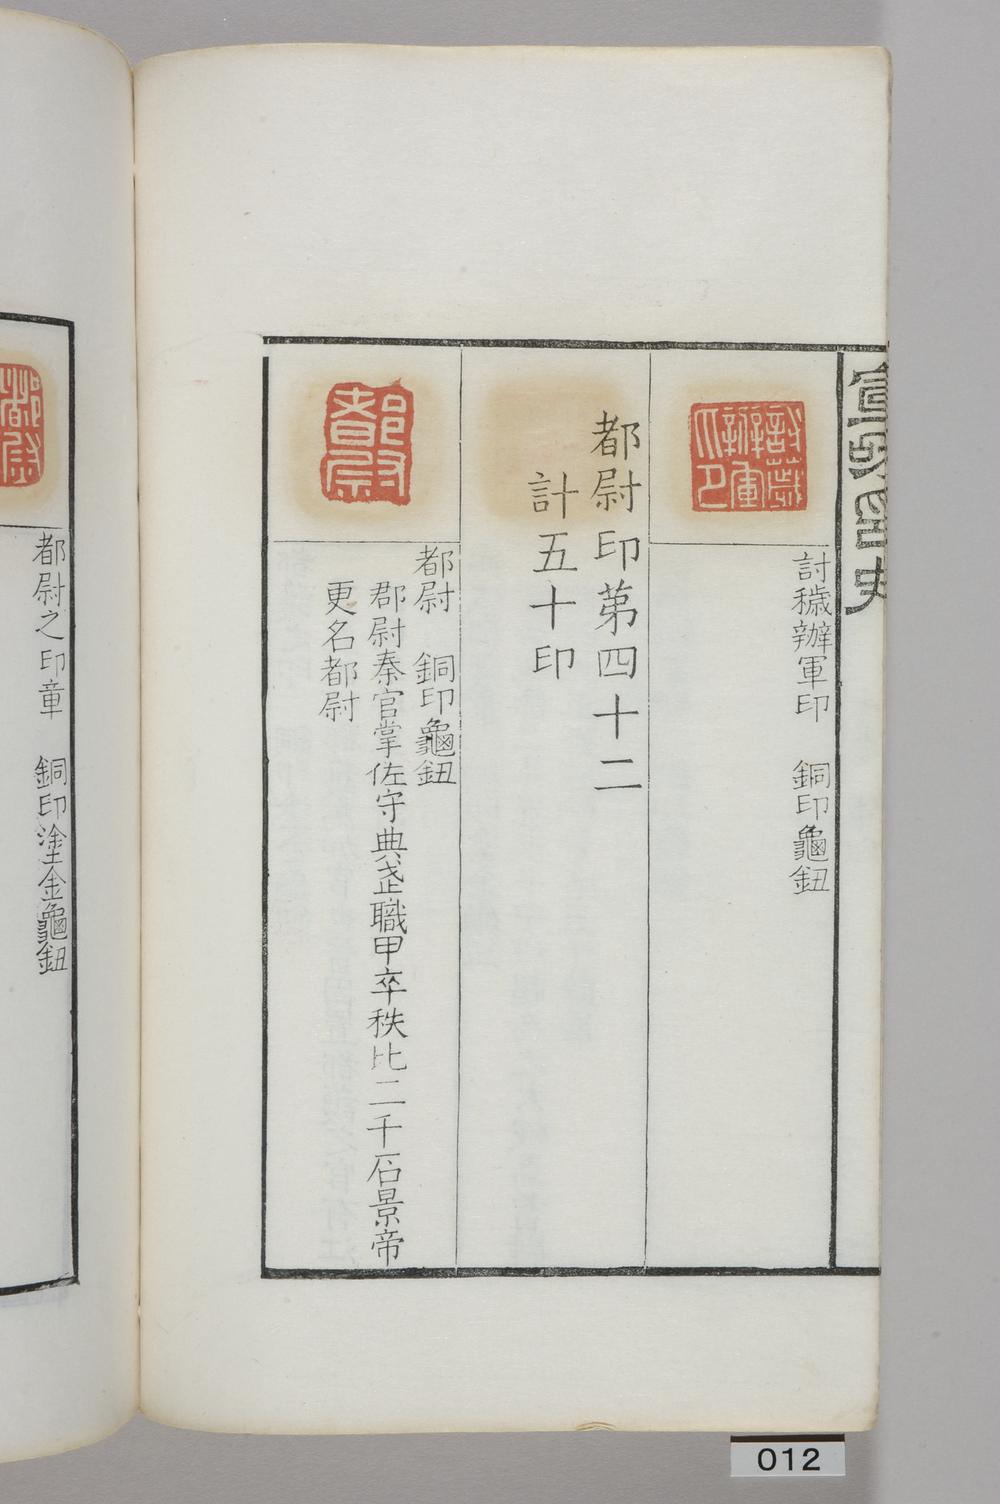 宣和印史
討薉辦軍印
討穢辦軍印　銅印龜鈕
都尉印第四十二
計五十印
都尉
都尉　銅印龜鈕
郡尉秦官掌佐守典武職甲卒秩比二千石景帝
更名都尉
都尉
都尉之印章　銅印塗金龜鈕
012